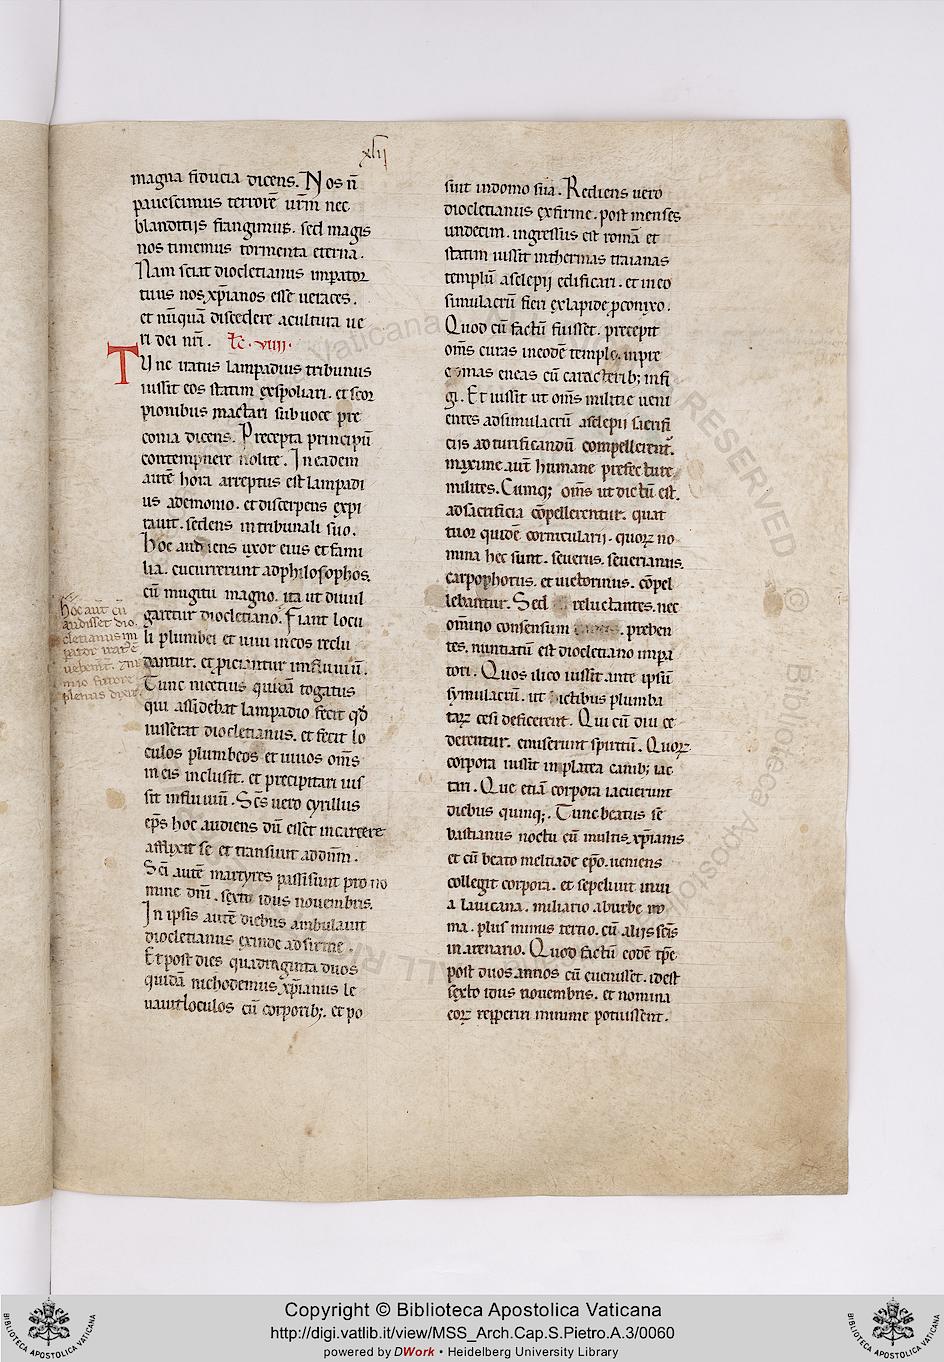 xlij
magna fiducia dicens. Nos n̄
pauescimus terrorē urm̄ nec
blanditijs frangimus. sed magis
nos timemus tormenta eterna.
Nam sciat dioclecianus imp̄ator
tuus nos xp̄ianos esse ueraces.
et nūquā discedere acultura ue
ri dei nr̄i. Łc. viiii.
Tunc iratus lampadius tribunus
iussit eos statim exspoliari. et scor
pionibus mactari sub uoce pre
conia dicens. Precepta principū
contempnere nolite. In eadem
autē hora arreptus est lampadi
us ademonio. et discerpens se expi
rauit. sedens in tribunali suo.
Hoc audiens uxor eius et fami
lia. cucurrerunt adphilosophos.
cū mugitu magno. ita ut diuul
garetur diocletiano. Fiant locu
li plumbei et uiui in eos reclu
dantur. et proiciantur influuiū.
Tunc nicetius quidā togatus
qui assidebat lampadio fecit qd̄
iusserat dioclecianus. et fecit lo
culos plumbeos et uiuos om̄s
in eis inclusit. et precipitari ius
sit influuiū. Scs̄ uero cyrillus
ep̄s hoc audiens dū esset incarcere
afflixit se et transiuit ad dnm̄.
Sc̄i autē martyres passi sunt pro no
mine dnī. sexto idus nouembris.
In ipsis autē diebus ambulauit
dioclecianus exinde adsirme.
Et post dies quadraginta duos
quidā nichodemus xp̄ianus le
uauit loculos cū corporib;. et po
hoc aut̄ cū
audisset dio
cletianus im
pator irat' ē
uehemt̄. 7 ni
mio furore
plenus dixit.
suit indomo sua. Rediens uero
diocletianus exsirme. post menses
undecim. ingressus est romā et
statim iussit inthermas traianas
templū asclepij edificari. et in eo
simulacrū fieri exlapide pconixo.
Quod cū factū fuisset. precepit
om̄s curas ineodē templo. inpre
conias eneas cū caracterib; infi
gi. Et iussit ut om̄s militie ueni
entes adsimulacrū asclepii sacrifi
ciis adturificandū compellerent̄.
maxime aut̄ humane prefecture
milites. Cumq; om̄s ut dictū est.
adsacrificia cōpellerentur. quat
tuor quidē cornicularij. quorꝝ no
mina hec sunt. seuerus. seuerianus.
carpophorus. et uictorinus. cōpel
lebantur. Sed reluctantes. nec
om̄ino consensum preben
tes. nuntiatū est diocletiano impa
tori. Quos ilico iussit ante ipsū
symulacrū. ut ictibus plumba
tarꝝ cesi deficerent. Qui cū diu ce
derentur. emiserunt spiritū. Quorꝝ
corpora iussit in platea canib; iac
tari. Que etiā corpora iacuerunt
diebus quinq;. Tunc beatus se
bastianus noctu cū multis xp̄ianis
et cū beato meltiade ep̄o. ueniens
collegit corpora. et sepeliuit inui
a lauicana. miliario aburbe ro
ma. plus minus tertio. cū alijs scīs
in arenario. Quod factū eodē tp̄e
post duos annos cū euenisset. idest
sexto idus nouembris. et nomina
eorꝝ repperiri minime potuissent.
Copyright © Biblioteca Apostolica Vaticana
http://digi.vatlib.it/view/MSS_Arch.Cap.S.Pietro.A.3/0060
powered by DWork • Heidelberg University Library
BIBLIOTECA APOSTOLICA VATICANA
BIBLIOTECA APOSTOLICA VATICANA